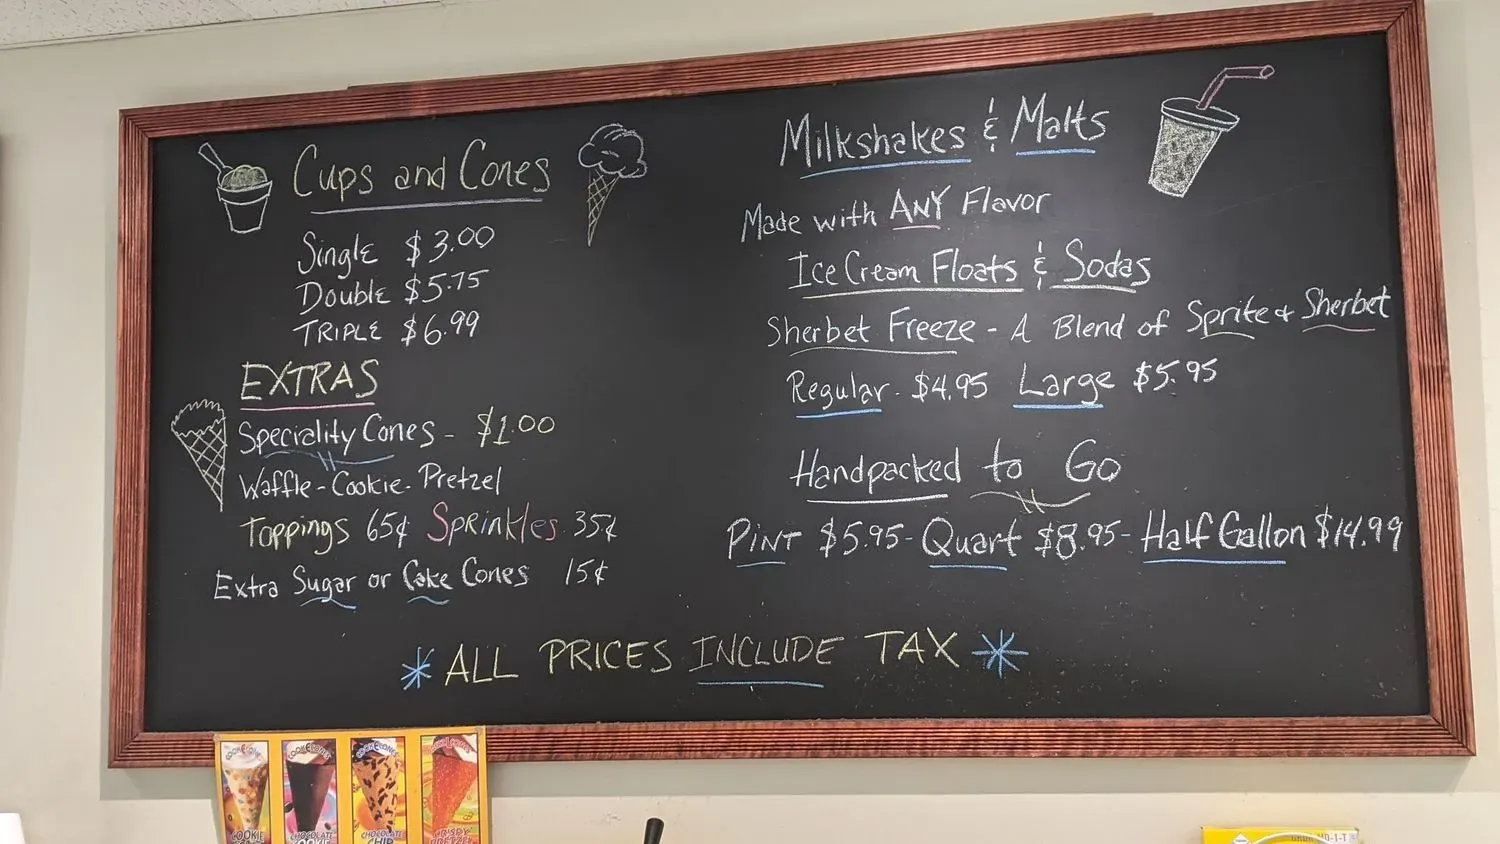 Cups and Cones
Single $3.00
Double $5.75
TRIPLE $6.99
EXTRAS
Speciality Cones - $1.00
Waffle - Cookie - Pretzel
Toppings 65¢ Sprinkles 35¢
Extra Sugar or Cake Cones 15¢
Milkshakes & Malts
Made with ANY Flavor
Ice Cream Floats & Sodas
Sherbet Freeze - A Blend of Sprite & Sherbet
Regular - $4.95 Large $5.95
Handpacked to Go
Pint $5.95 - Quart $8.95 - Half Gallon $14.99
* ALL PRICES INCLUDE TAX *
COOKIE
CHOCOLATE
CHOCOLATE
CHIP
CRISPY
PRETZEL